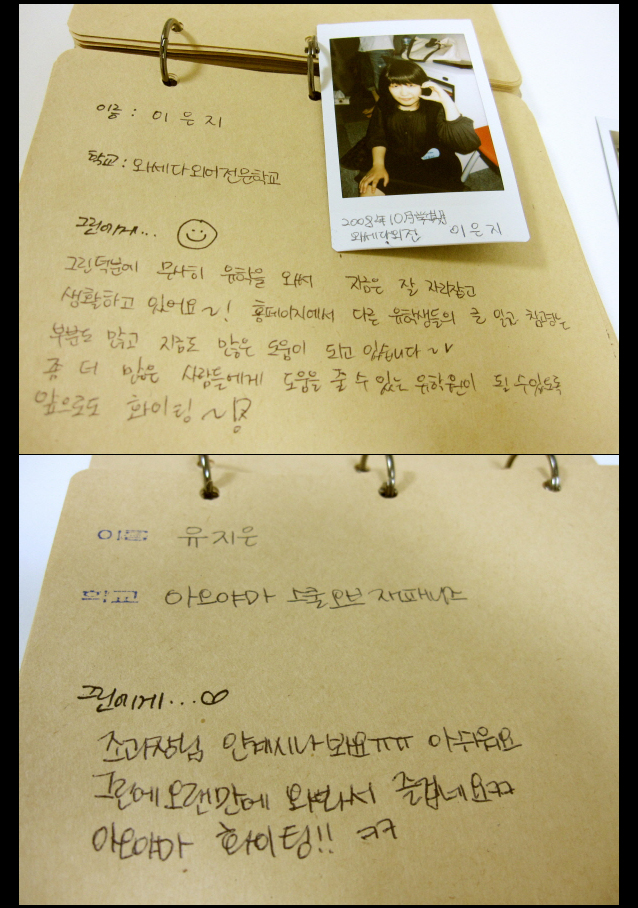 이름 : 이 은 지
학교 : 와세다외어전문학교
2008년 10月학기
와세다외전 이은지
그린에게...
그린덕분에 무사히 유학을 와서 지금은 잘 자리잡고
생활하고 있어요~! 홈페이지에서 다른 유학생들의 글 읽고 참고하는
부분도 많고 지금도 많은 도움이 되고 있습니다~
좀 더 많은 사람들에게 도움을 줄 수 있는 유학원이 될 수 있도록
앞으로도 화이팅~!
이름 유지은
학교 아오야마 스쿨오브 재패니즈
그린에게...♡
조과장님 안계시나봐요ㅠㅠ 아쉬워요
그린에 오랜만에 와봐서 즐겁네요ㅋㅋ
아오야마 화이팅!! ㅋㅋ